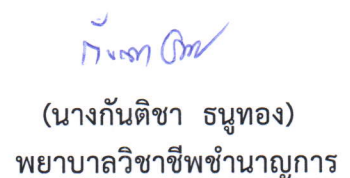 (นางกันติชา ธนูทอง)
พยาบาลวิชาชีพชำนาญการ